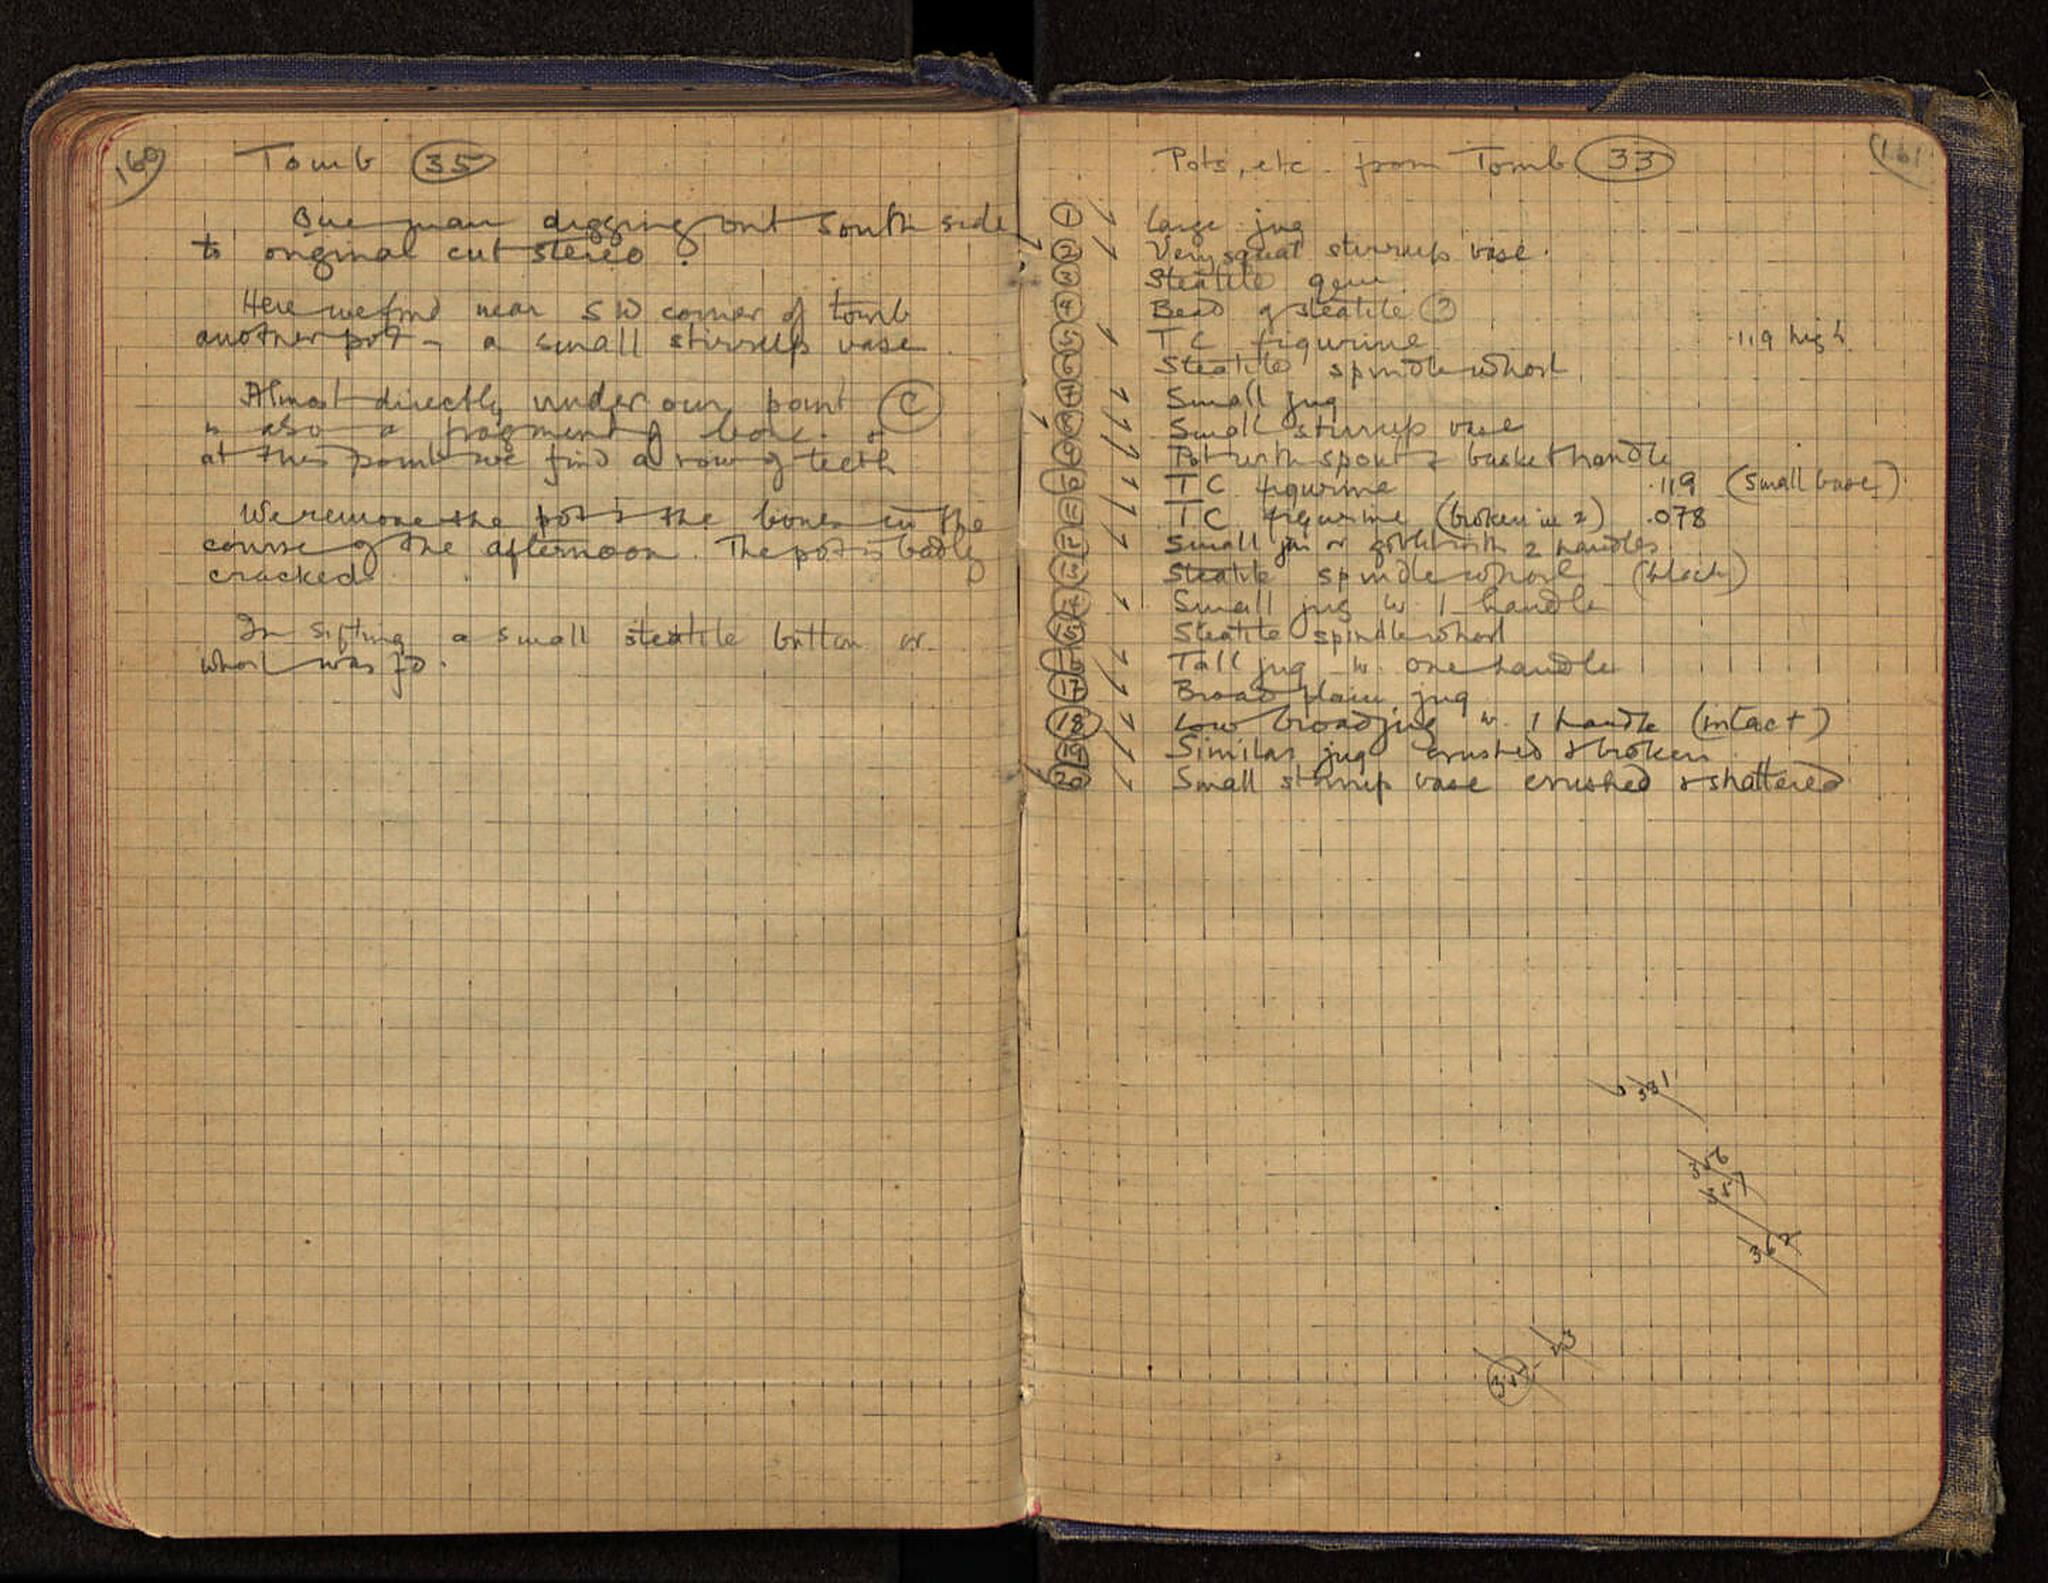 160
Tomb 35
One man digging out south side
to original cut stereo.
Here we find near SW corner of tomb
another pot - a small stirrup vase.
Almost directly under our point C
is also a fragment of bone. &
at this point we find a row of teeth
We remove the pot & the bones in the
course of the afternoon. The pot is badly
cracked.
In sifting a small steatite button or
whorl was fd.
161
Pots, etc. from Tomb 33
1 Large jug
2 Very squat stirrup vase.
3 Steatite gem
4 Bead of steatite ?
5 TC figurine .119 high
6 Steatite spindle whorl
7 Small jug
8 Small stirrup vase
9 Pot with spout & basket handle
10 TC figurine .119 (small base)
11 TC figurine (broken in 2) .078
12 Small jar or goblet with 2 handles
13 Steatite spindle whorl (black)
14 Small jug w. 1 handle
15 Steatite spindle whorl
16 Tall jug w. one handle
17 Broad plain jug
18 Low broad jug w. 1 handle (intact)
19 Similar jug crushed & broken
20 Small stirrup vase crushed & shattered
331
356
357
362